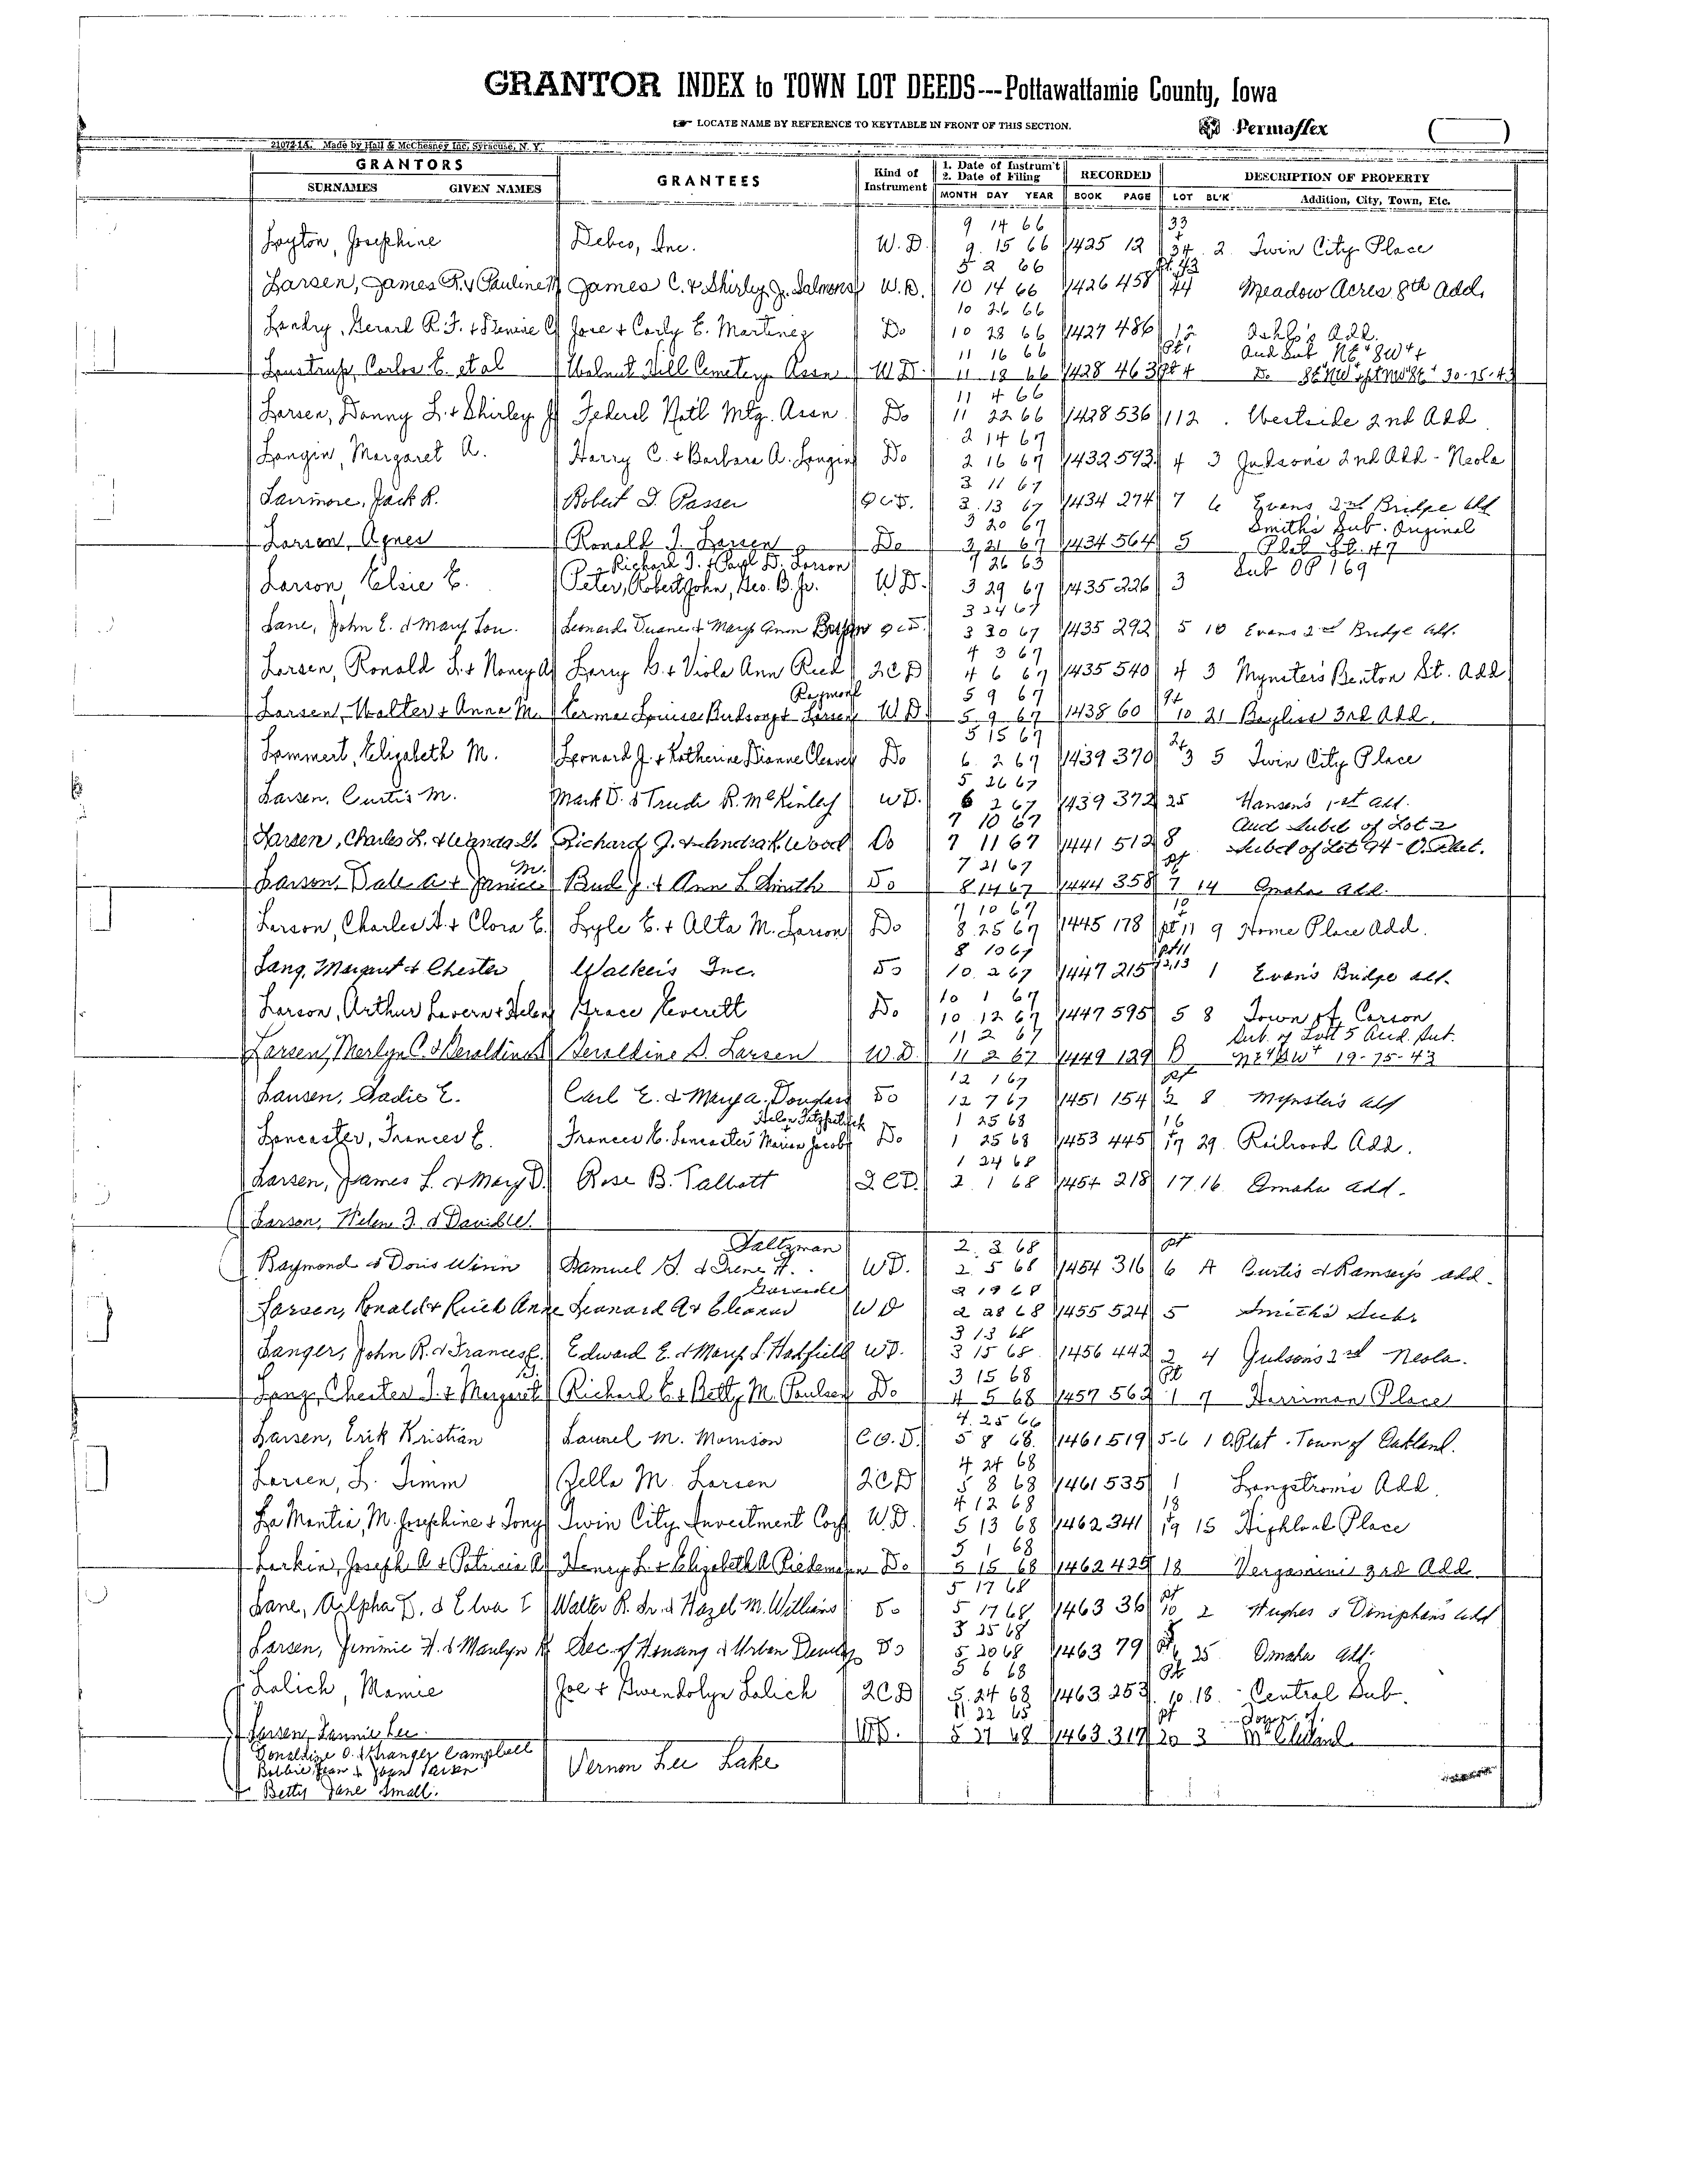 GRANTOR INDEX to TOWN LOT DEEDS---Pottawattamie County, Iowa
LOCATE NAME BY REFERENCE TO KEYTABLE IN FRONT OF THIS SECTION. Permaflex
21072-1A. Made by Hall & McChesney Inc, Syracuse, N. Y.
GRANTORS GRANTEES Kind of Instrument 1. Date of Instrum't 2. Date of Filing RECORDED DESCRIPTION OF PROPERTY
SURNAMES GIVEN NAMES MONTH DAY YEAR BOOK PAGE LOT BL'K Addition, City, Town, Etc.
9 14 66 33
Layton, Josephine Debes, Inc. W.D. 9 15 66 1425 12 34 2 Twin City Place
5 2 66 Pt. 43
Larsen, James R. & Pauline M James C. & Shirly J. Salmons W.D. 10 14 66 1426 458 44 Meadow Acres 8th Add.
10 26 66
Landry, Gerard R.J. & Jose & Carly E. Martinez Do 10 28 66 1427 486 12 Dahl's Add.
11 16 66 Pt. 1 Aud Sub NE4 SW4 +
Carlos E. et al Walnut Hill Cemetery Assn W.D. 11 18 66 1428 463 Pt 4 Do 30-75-43
11 4 66
Larsen, Danny L. & Shirley J Federal Natl Mtg. Assn. Do 11 22 66 1428 536 112 Westside 2nd Add
2 14 67
Langin, Margaret A. Harry C. & Barbara A. Langin Do 2 16 67 1432 592 4 3 Judson's 2nd Add - Neola
3 11 67
Larrimore, Jack R. Robert D. Passer QCD. 3 13 67 1434 274 7 6 Evans 2nd Bridge Add
3 20 67 Smith's Sub. Original
Larsen, Agnes Ronald J. Larsen Do 3 21 67 1434 564 5 Plat Lt. 47
Richard J. & Paul D. Larson 9 26 63 Sub OP 169
Larson, Elsie E. Peter, Robert, John, Geo. B. Jr. W.D. 3 29 67 1435 226 3
3 24 67
Lane, John E. & Mary Lou. Leonard Duane & Mary Ann QCD. 3 30 67 1435 292 5 10 Evans 2nd Bridge Add.
4 3 67
Larsen, Ronald L. & Nancy A Larry G. & Viola Ann Reed QCD 4 6 67 1435 540 4 3 Mynster's Benton St. Add
Raymond 5 9 67 Pt
Larsen, Walter & Anna M. Louise & Larsen W.D. 5 9 67 1438 60 10 21 Bayliss 3rd Add.
5 15 67
Lammert, Elizabeth M. Leonard J. & Katherine Dianne Cleaver Do 6 2 67 1439 370 3 5 Twin City Place
5 26 67
Larsen, Curtis M. Mark D. & Trudi R. McKinley W.D. 6 2 67 1439 372 25 Hansen's 1st Add.
7 10 67 Aud Subd of Lot 2
Larsen, Charles L. & Wanda D. Richard J. & Linda K. Wood Do 7 11 67 1441 512 8 Subd of Lot 94 - O. Plat.
M. 7 21 67 Pt
Larson, Dale A & Janice Bud J. & Ann L. Smith Do 8 14 67 1444 358 7 14 Omaha Add.
7 10 67 10
Larson, Charles A. & Clora E. Lyle E. & Alta M. Larson Do 8 25 67 1445 178 pt 11 9 Home Place Add.
8 10 67 pt 11
Lang, Margaret & Chester Walkers Inc. Do 10 2 67 1447 215 12,13 1 Evan's Bridge Add.
10 1 67
Larson, Arthur Lavern & Helen Grace Everett Do 10 12 67 1447 595 5 8 Town of Carson
11 2 67 Sub. of Lot 5 Aud. Sub.
Larsen, Merlyn C. & Geraldine S. Geraldine S. Larsen W.D. 11 2 67 1449 129 B NE4 SW4 19-75-43
12 1 67 pt
Lausen, Sadie E. Carl E. & Mary A. Douglass Do 12 7 67 1451 154 2 8 Mynsters Add
1 25 68 16
Lancaster, Frances E. Frances E. Lancaster Marian Jacobs Do 1 25 68 1453 445 17 29 Railroad Add.
1 24 68
Larsen, James L. & Mary D. Rose B. Talbott QCD. 2 1 68 1454 218 17 16 Omaha Add.
Larson, Helen J. & David W.
Saltzman 2 2 68 pt
Raymond & Doris Winn Samuel G. & Irene H. WD. 2 5 68 1454 316 6 A Curtis & Ramsey's Add.
2 19 68
Larsen, Ronald & Ruth Anne Leonard A & Eleanor WD 2 28 68 1455 524 5 Smith's Sub.
3 13 68
Langer, John R. & Frances E. Edward E. & Mary L. Hatfield WD. 3 15 68 1456 442 2 4 Judson's 2nd Neola.
3 15 68 Pt
Lang, Chester J. & Margaret Richard E. & Betty M. Paulsen Do 4 5 68 1457 562 1 7 Harriman Place
4 25 66
Larsen, Erik Kristian Laurel M. Morrison CO.D. 5 8 68 1461 519 5-6 1 O. Plat. Town of Oakland.
4 24 68
Larsen, L. Timm Zella M. Larsen QCD 5 8 68 1461 535 1 Langstrom's Add.
4 12 68 18
La Mantia, M. Josephine & Tony Twin City Investment Corp W.D. 5 13 68 1462 341 19 15 Highland Place
5 1 68
Larkin, Joseph A. & Patricia A Henry L. & Elizabeth A Riedemann Do 5 15 68 1462 425 18 Vergamini's 3rd Add.
5 17 68 pt
Lane, Ralpha D. & Elva I Walter R. Sr. & Hazel M. Williams Do 5 17 68 1463 36 10 2 Hughes & Doniphan's Add
3 25 68
Larsen, Jimmie H. & Marilyn K Sec. of Housing & Urban Develp. Do 5 20 68 1463 79 25 Omaha Add.
5 6 68 Pt
Lalich, Mamie Joe & Gwendolyn Lalich QCD 5 24 68 1463 253 10 18 Central Sub.
11 22 65 pt Town of
Larsen, Fannie Lee WD. 5 27 68 1463 317 20 3 McClelland
Campbell
Vernon Lee Lake
Bobbie Jean & Larsen
Betty Jane Small.